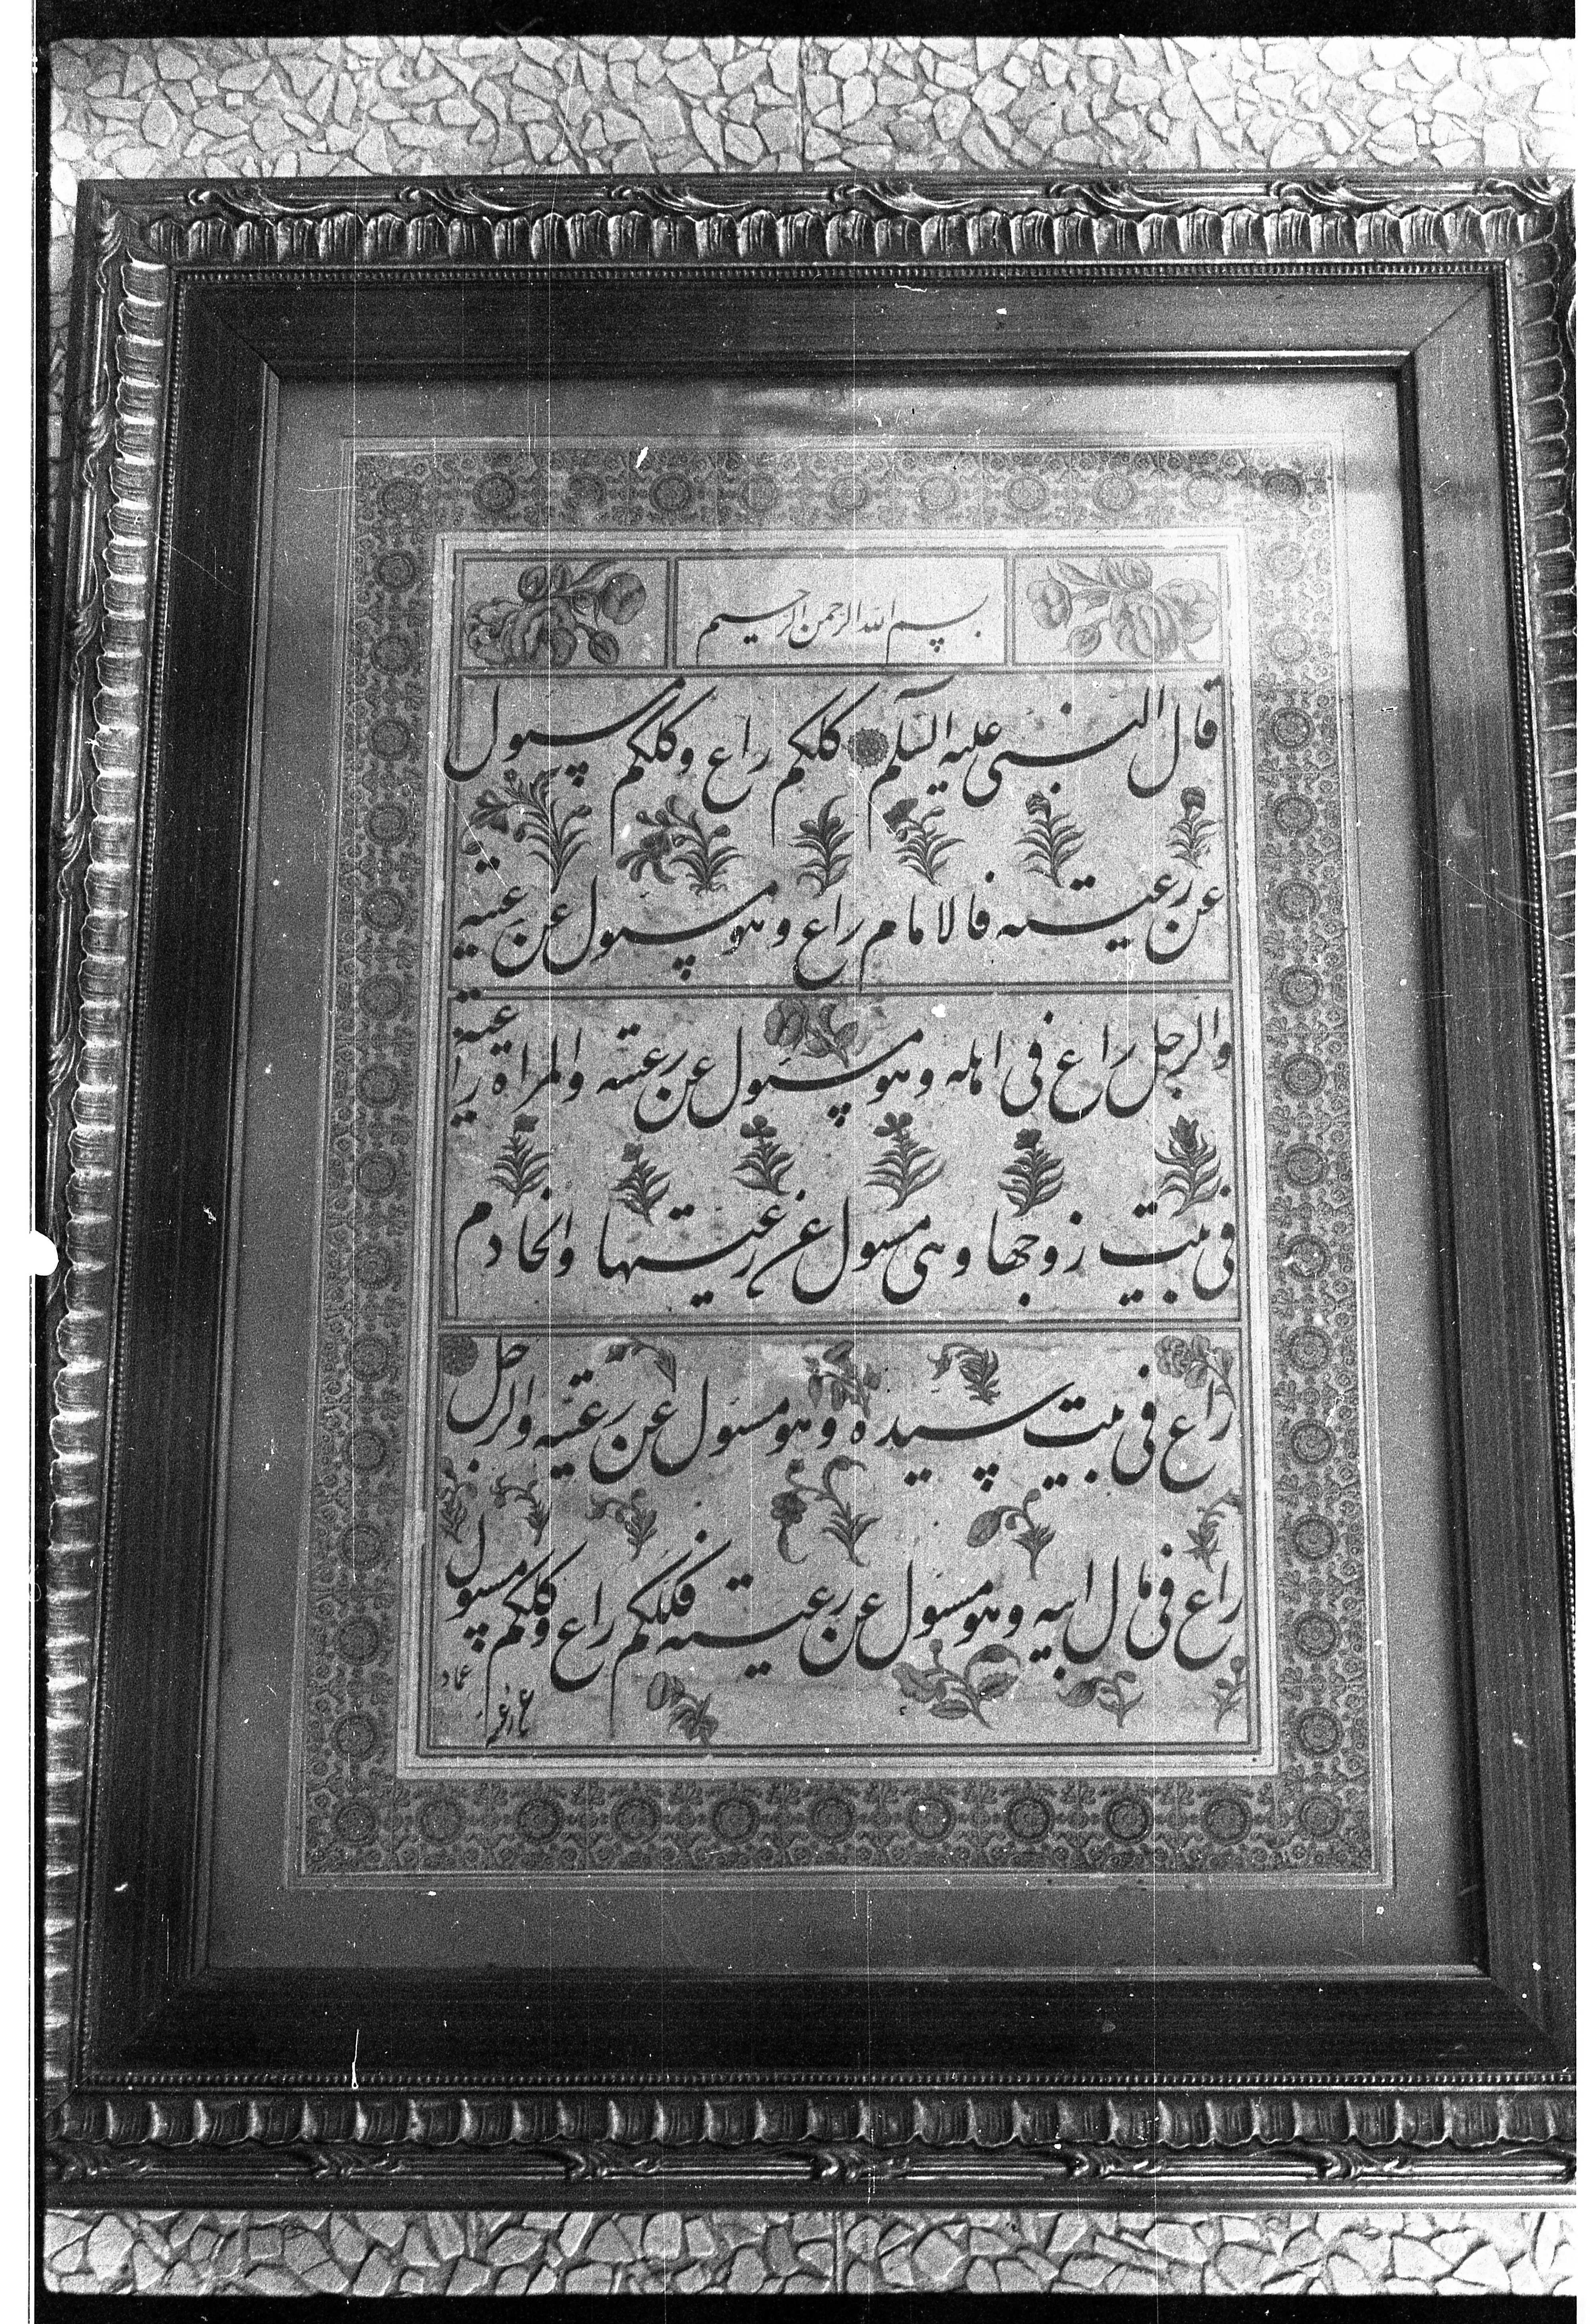 بسم الله الرحمن الرحیم
قال النبی علیه السلام کلکم راع وکلکم مسول
عن رعیته فالامام راع وهو مسول عن رعیته
والرجل راع فی اهله وهو مسول عن رعیته والمراة راعیة
فی بیت زوجها وهی مسول عن رعیتها والخادم
راع فی بیت سیده وهو مسول عن رعیته والرجل
راع فی مال ابیه وهو مسول عن رعیته فکلکم راع وکلکم مسول
عماد